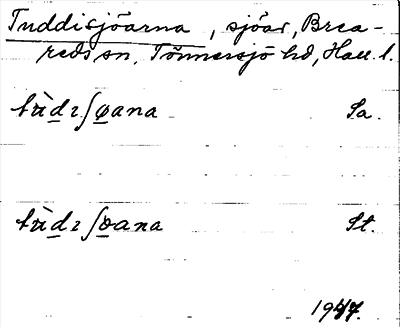 Tuddisjöarna, sjöar, Brea-
reds sn, Tönnersjö hd, Hall. l.
tùdıʃøana Sa.
tùdıʃoana St.
1947.